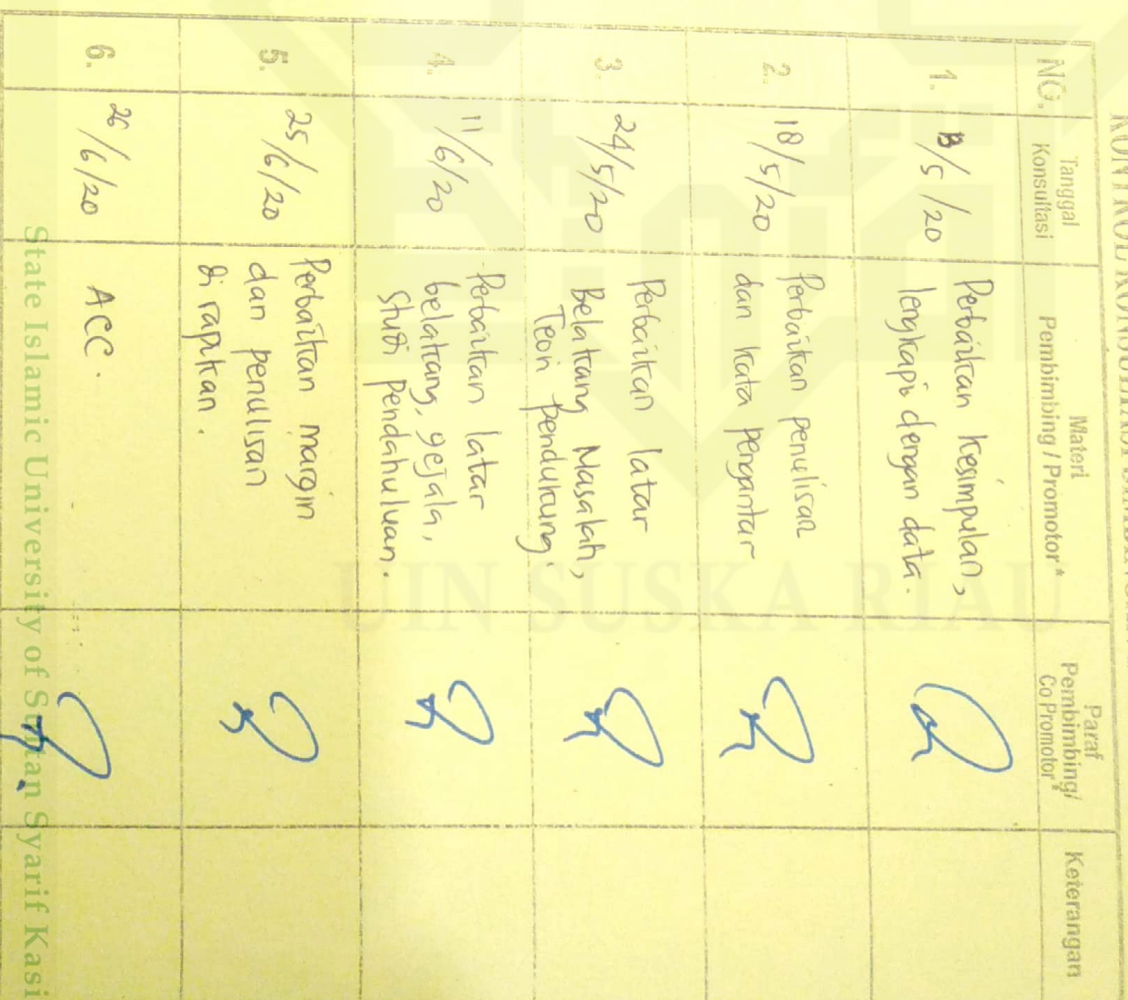 NO.
Tanggal
Konsultasi
Materi
Pembimbing / Promotor *
Paraf
Pembimbing/
Co Promotor *
Keterangan
1.
/5/20
Perbaikan kesimpulan,
lengkapi dengan data.
2.
18/5/20
Perbaikan penulisan
dan kata pengantar
3.
24/5/20
Perbaikan latar
Belakang Masalah,
Teori pendukung.
4.
11/6/20
Perbaikan latar
belakang, gejala,
studi pendahuluan.
5.
25/6/20
Perbaikan margin
dan penulisan
di rapikan.
6.
26/6/20
ACC.
UIN SUSKA RIAU
State Islamic University of Sultan Syarif Kasi